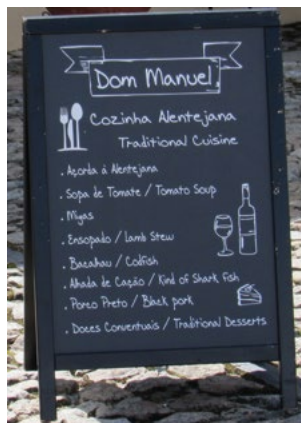 Dom Manuel
Cozinha Alentejana
Traditional Cuisine
. Açorda á Alentejana
. Sopa de Tomate / Tomato Soup
. Migas
. Ensopado / Lamb Stew
. Bacalhau / Codfish
. Alhada de Cação / Kind of Shark Fish
. Porco Preto / Black pork
. Doces Conventuais / Traditional Desserts